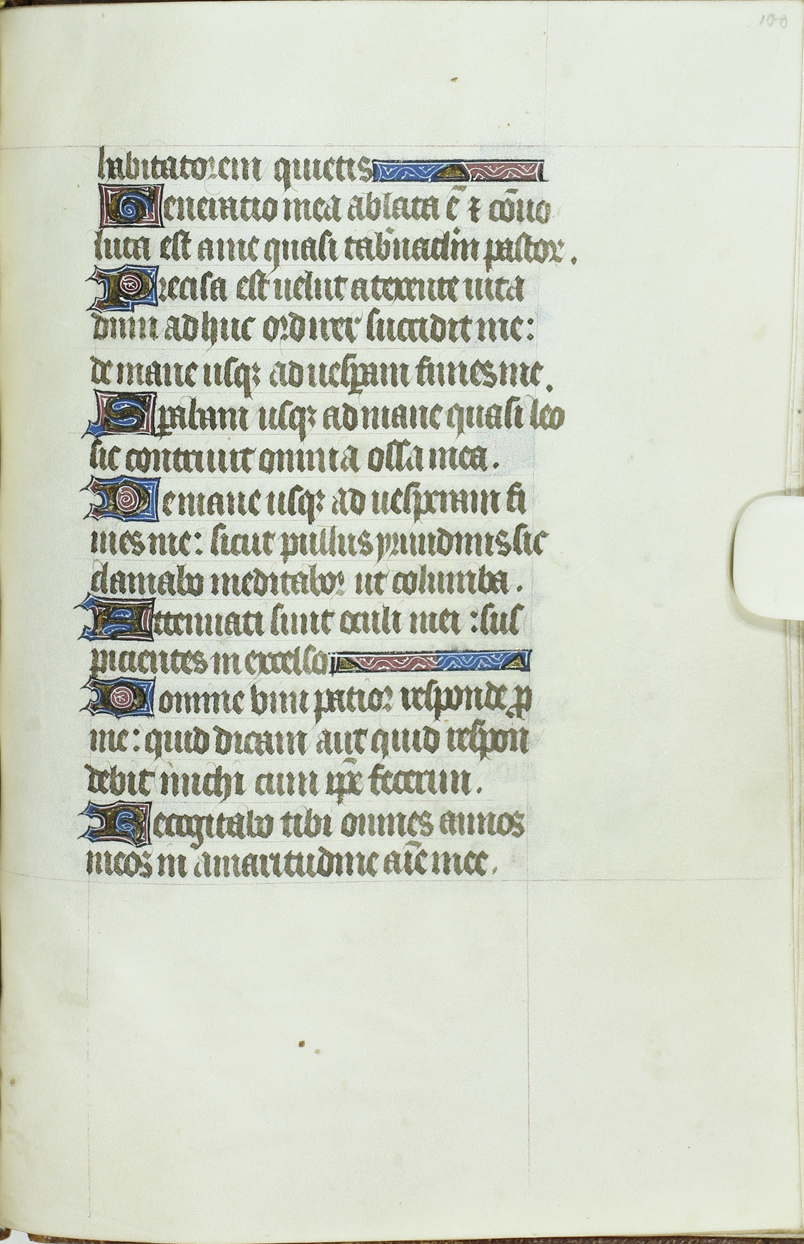 100
habitatorem quietis
Generatio mea ablata ē ⁊ cōuo
luta est a me quasi tab'nac̄lm pastor.
Precisa est uelut a texente uita
dum adhuc ordirer succidit me:
de mane usqꝫ ad uesꝑam finies me.
Sꝑabam usqꝫ ad mane quasi leo
sic contriuit omnia ossa mea.
De mane usqꝫ ad uesperam fi
nies me: sicut pullus yrundinis sic
clamabo meditabor ut columba.
Attenuati sunt oculi mei: sus
picientes in excelso
Domine vim patior responde ꝓ
me: quid dicam aut quid respon
debit michi cum ip̄e fecerim.
Recogitabo tibi omnes annos
meos in amaritudine aīe mee.